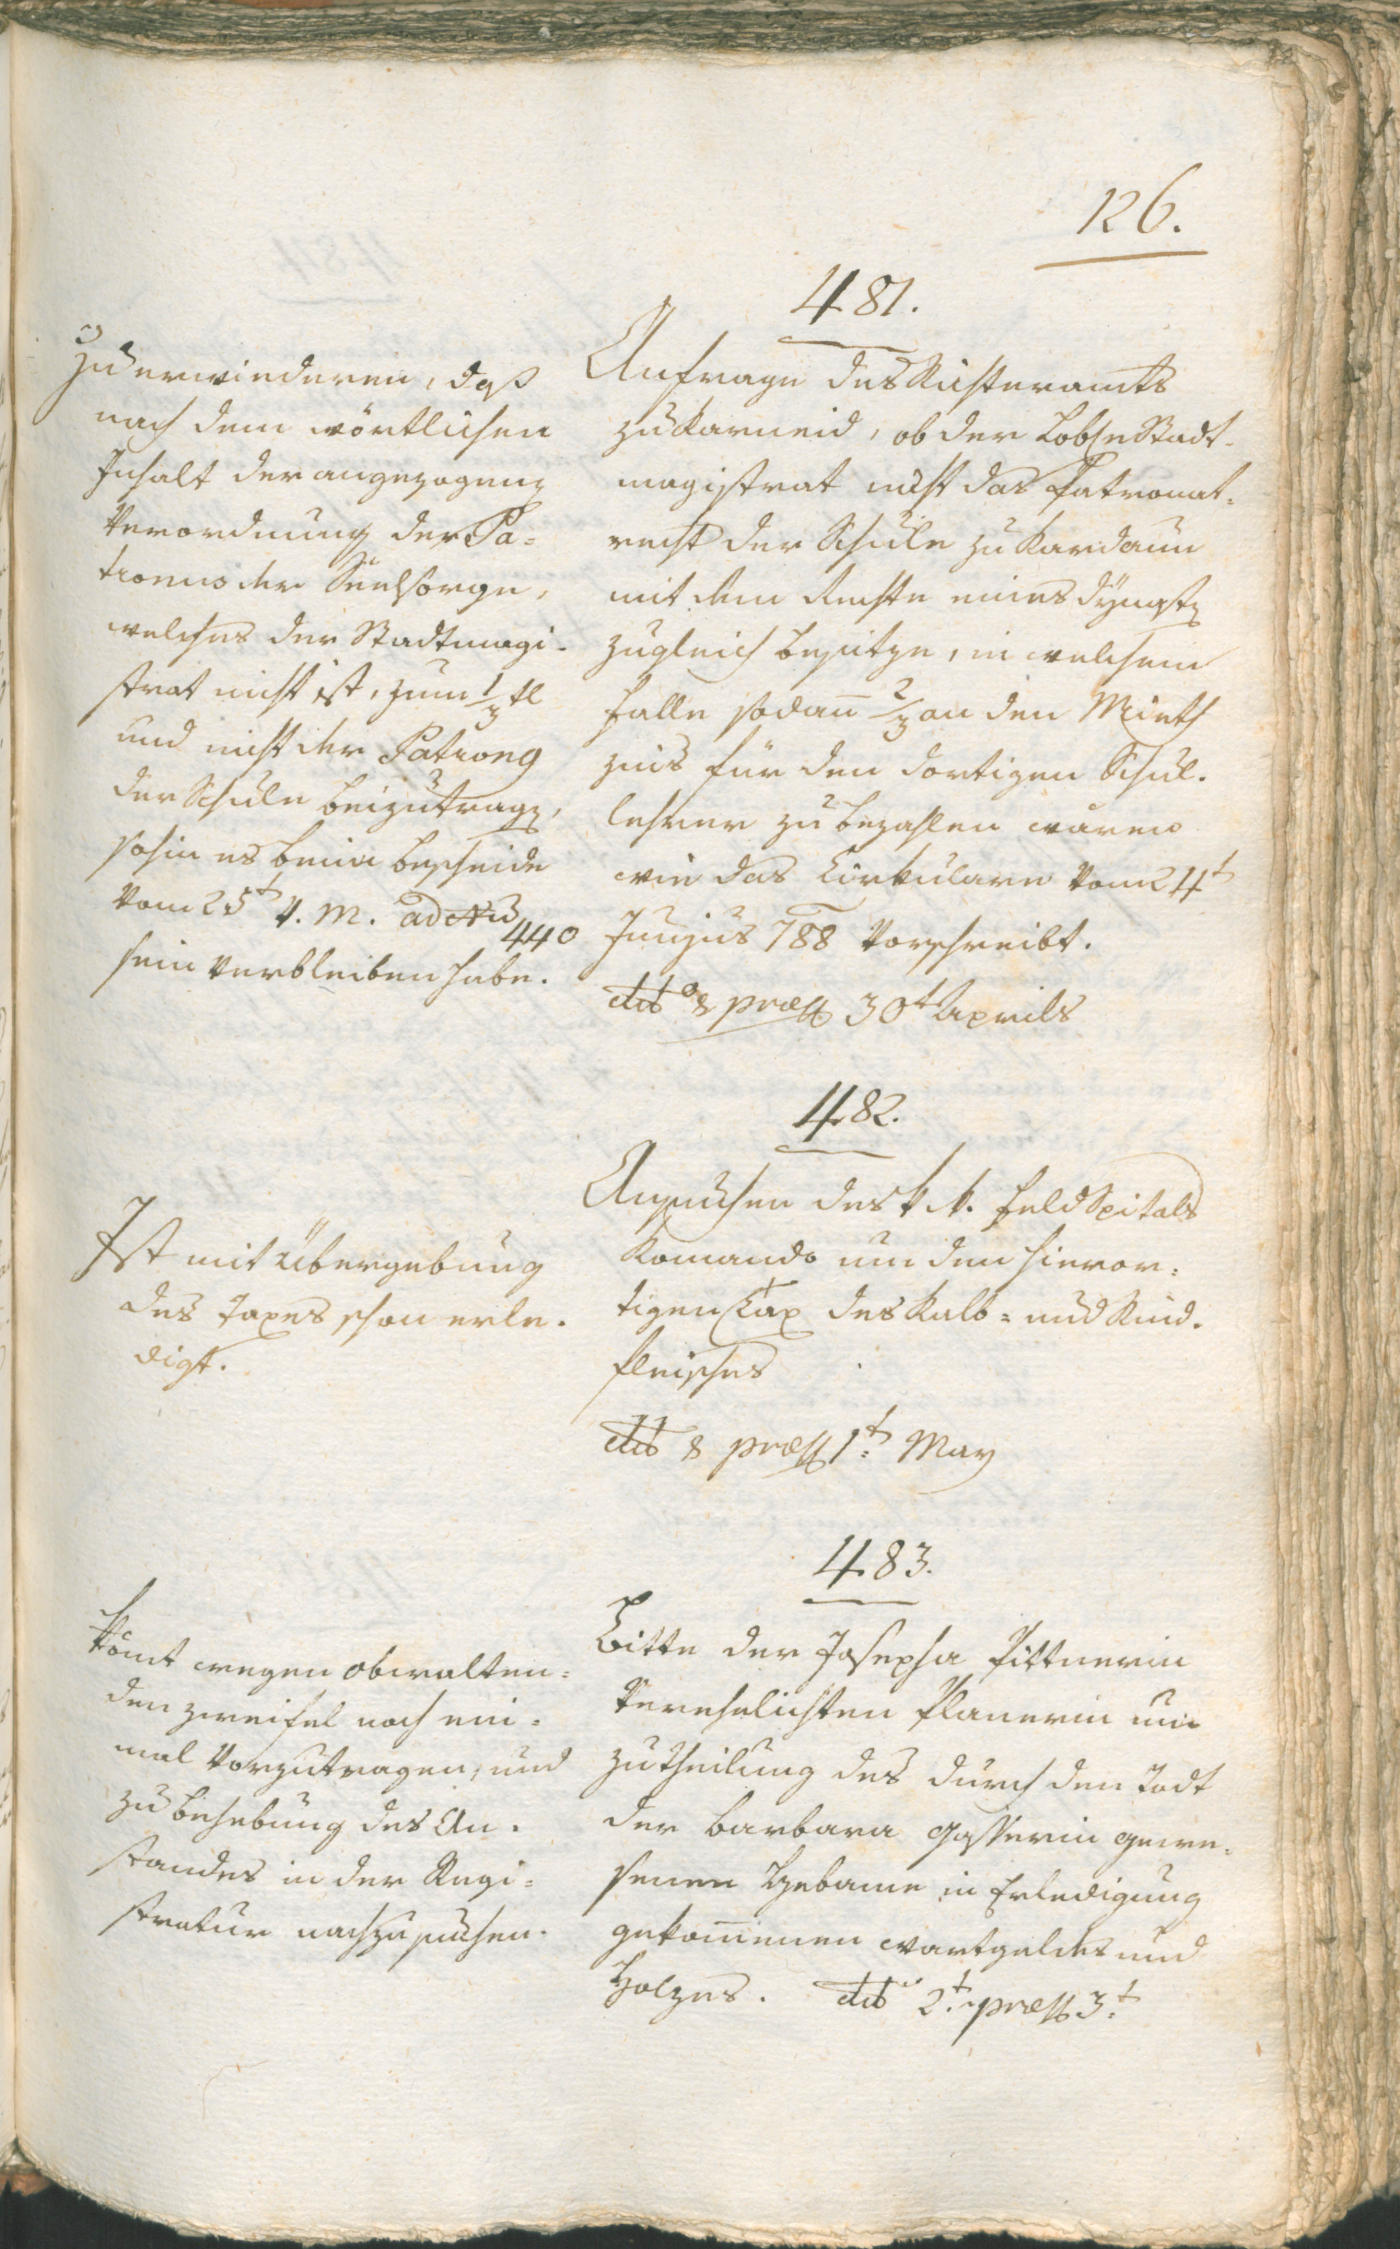 126.
481.
Anfrage des Richteramts
zu Karneid, ob der Lobl: Stadt-
magistrat nicht das Patronat-
recht der Schule zu Kardaun
mit dem Rechte eines
zugleich besitze, in welchem
Falle sodan̄ 2/3 an den Mieth
zins für den dortigen Schul-
lehrer zu bezahlen wären
wie das Cirkulare vom 24t
Junius 788 vorschreibt.
dto & præs 30t Aprils
Zu erwiederen, daß
nach dem wörtlichen
Inhalt der angezogenen
Verordnung der Pa-
tronus der Seelsorge,
welches der Stadtmagi-
strat nicht ist, zum 1/3 tl
und nicht der Patronus
der Schule beizutragen,
sohin es beim Bescheide
vom 25t v. M. ad Nu 440
sein Verbleiben habe.
482.
Ansuchen des k. k. Feldspitals
Komando um den hieror-
tigen Tax des Kalb- und Rind-
fleisches
dto & præs 1t May
Ist mit Übergebung
des Taxes schon erle-
digt.
483.
Bitte der Josepha Pittnerin
verehelichten Planerin um
Zutheilung des durch den Todt
der Barbara Gasserin gewe-
senen Hebame in Erledigung
gekom̄enen Wartgeldes und
Holzes. dto 2t præs 3t
Kom̄t wegen obwalten-
den Zweifel noch ein-
mal vorzutragen, und
zu Behebung des An-
standes in der Regi-
stratur nachzusuchen.